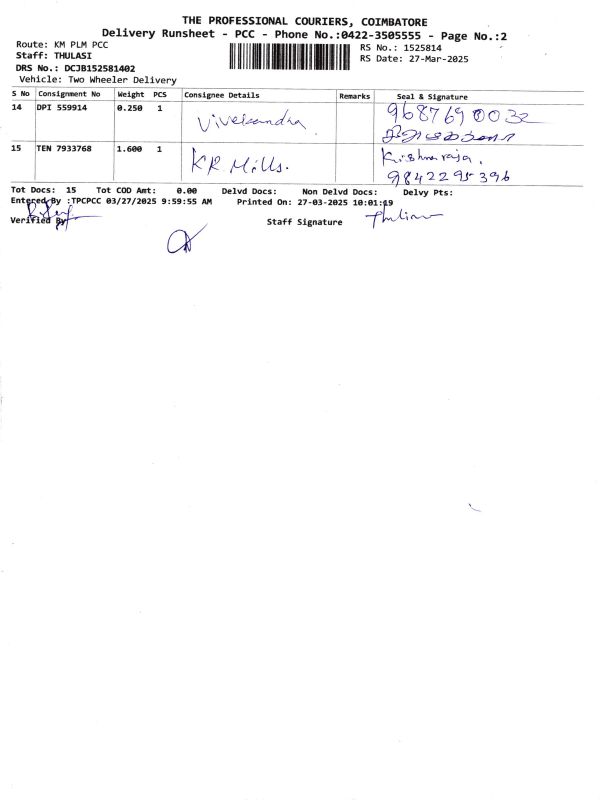 THE PROFESSIONAL COURIERS, COIMBATORE
Delivery Runsheet - PCC - Phone No.:0422-3505555 - Page No.:2
Route: KM PLM PCC
Staff: THULASI
DRS No.: DCJB152581402
Vehicle: Two Wheeler Delivery
RS No.: 1525814
RS Date: 27-Mar-2025
S No Consignment No Weight PCS Consignee Details Remarks Seal & Signature
14 DPI 559914 0.250 1 Vivekandha 9687690032
15 TEN 7933768 1.600 1 KR Mills. Krishna raja,
9842295396
Tot Docs: 15 Tot COD Amt: 0.00 Delvd Docs: Non Delvd Docs: Delvy Pts:
Entered By :TPCPCC 03/27/2025 9:59:55 AM Printed On: 27-03-2025 10:01:19
Verified By Staff Signature